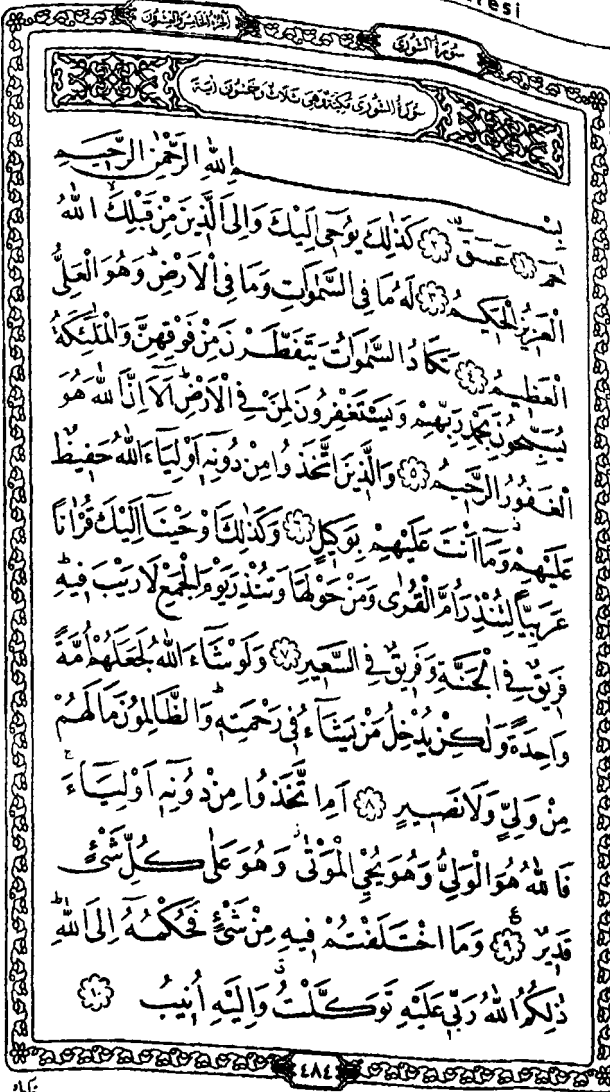 resi
سُورَةُ الشُّورٰى
الجزء الخامس والعشرون
سُورَةُ الشُّورٰى مَكِّيَّةٌ وَهِيَ ثَلَاثٌ وَخَمْسُونَ اٰيَةً
بِسْمِ اللهِ الرَّحْمٰنِ الرَّحِيمِ
حٰمٓ ﴿١﴾ عٓسٓقٓ ﴿٢﴾ كَذٰلِكَ يُوحٖٓي اِلَيْكَ وَاِلَى الَّذٖينَ مِنْ قَبْلِكَ اللهُ
الْعَزٖيزُ الْحَكٖيمُ ﴿٣﴾ لَهُ مَا فِي السَّمٰوَاتِ وَمَا فِي الْاَرْضِ وَهُوَ الْعَلِيُّ
الْعَظٖيمُ ﴿٤﴾ تَكَادُ السَّمٰوَاتُ يَتَفَطَّرْنَ مِنْ فَوْقِهِنَّ وَالْمَلٰٓئِكَةُ
يُسَبِّحُونَ بِحَمْدِ رَبِّهِمْ وَيَسْتَغْفِرُونَ لِمَنْ فِي الْاَرْضِ اَلَٓا اِنَّ اللهَ هُوَ
الْغَفُورُ الرَّحٖيمُ ﴿٥﴾ وَالَّذٖينَ اتَّخَذُوا مِنْ دُونِهٖٓ اَوْلِيَٓاءَ اللهُ حَفٖيظٌ
عَلَيْهِمْ وَمَٓا اَنْتَ عَلَيْهِمْ بِوَكٖيلٍ ﴿٦﴾ وَكَذٰلِكَ اَوْحَيْنَٓا اِلَيْكَ قُرْاٰنًا
عَرَبِيًّا لِتُنْذِرَ اُمَّ الْقُرٰى وَمَنْ حَوْلَهَا وَتُنْذِرَ يَوْمَ الْجَمْعِ لَا رَيْبَ فٖيهِ
فَرٖيقٌ فِي الْجَنَّةِ وَفَرٖيقٌ فِي السَّعٖيرِ ﴿٧﴾ وَلَوْ شَٓاءَ اللهُ لَجَعَلَهُمْ اُمَّةً
وَاحِدَةً وَلٰكِنْ يُدْخِلُ مَنْ يَشَٓاءُ فٖي رَحْمَتِهٖ وَالظَّالِمُونَ مَا لَهُمْ
مِنْ وَلِيٍّ وَلَا نَصٖيرٍ ﴿٨﴾ اَمِ اتَّخَذُوا مِنْ دُونِهٖٓ اَوْلِيَٓاءَ
فَاللهُ هُوَ الْوَلِيُّ وَهُوَ يُحْيِ الْمَوْتٰى وَهُوَ عَلٰى كُلِّ شَيْءٍ
قَدٖيرٌ ﴿٩﴾ وَمَا اخْتَلَفْتُمْ فٖيهِ مِنْ شَيْءٍ فَحُكْمُهُٓ اِلَى اللهِ
ذٰلِكُمُ اللهُ رَبّٖي عَلَيْهِ تَوَكَّلْتُ وَاِلَيْهِ اُنٖيبُ ﴿١٠﴾
٤٨٤